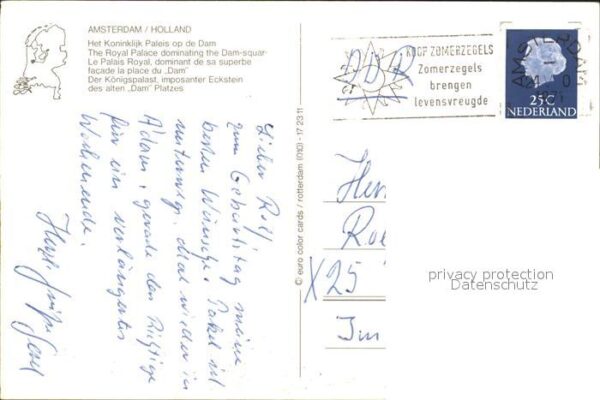 AMSTERDAM / HOLLAND
Het Koninklijk Paleis op de Dam
The Royal Palace dominating the Dam-squar
Le Palais Royal, dominant de sa superbe
facade la place du „Dam"
Der Königspalast, imposanter Eckstein
des alten „Dam" Platzes
Lieber Rolf,
zum Geburtstag meine
besten Wünsche. Pakel ist
unterwegs. Mal wieder in
A'dam, gerade das Richtige
für ein verlängertes
Wochenende.
Herzl. Grüße
© euro color cards / rotterdam (010) - 17 23 11
KOOP ZOMERZEGELS
Zomerzegels
brengen
levensvreugde
AMSTERDAM
25 C
NEDERLAND
DDR
Her
Ro
X25
Im
privacy protection
Datenschutz